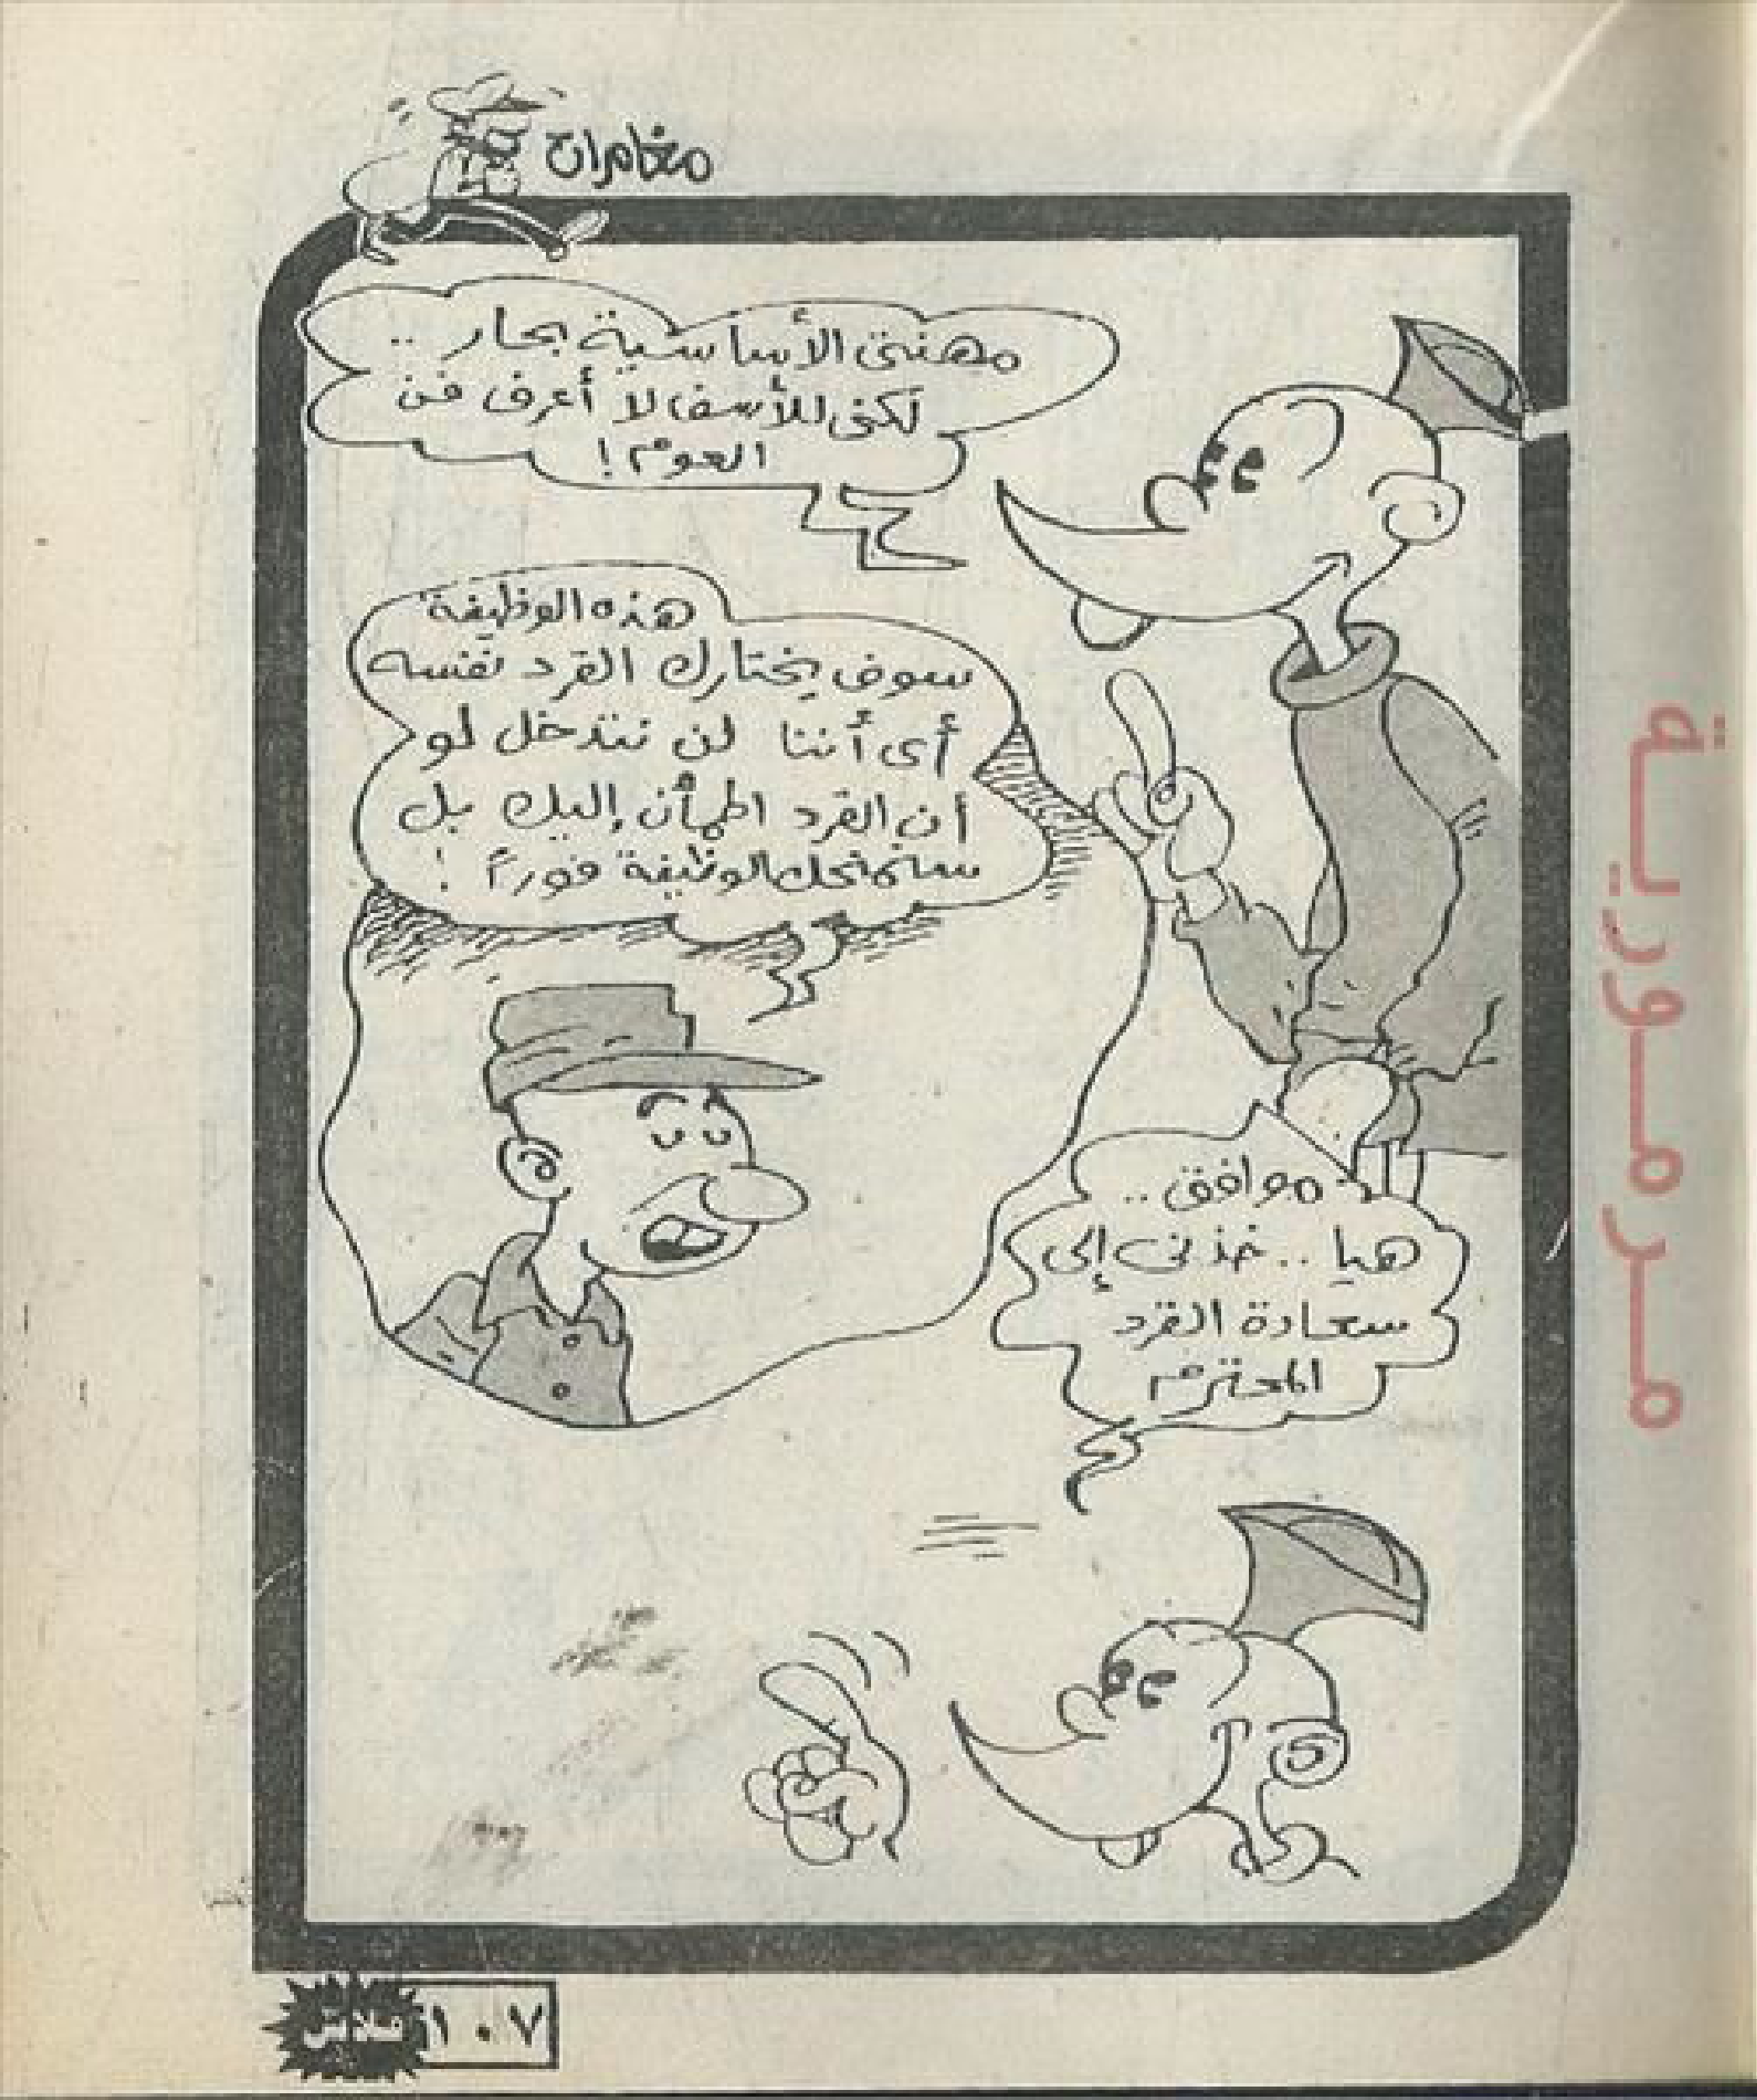 مغامرات
مهنتى الأساسية بحار ..
لكنى للأسف لا أعرف فن
العوم !
هذه الوظيفة
سوف يختارك القرد نفسه
أى أننا لن نتدخل لو
أن القرد اطمأن إليك بل
سنمنحك الوظيفة فوراً !
موافق ..
هيا .. خذنى إلى
سعادة القرد
المحترم
فلاش ١٠٧
مرمورية